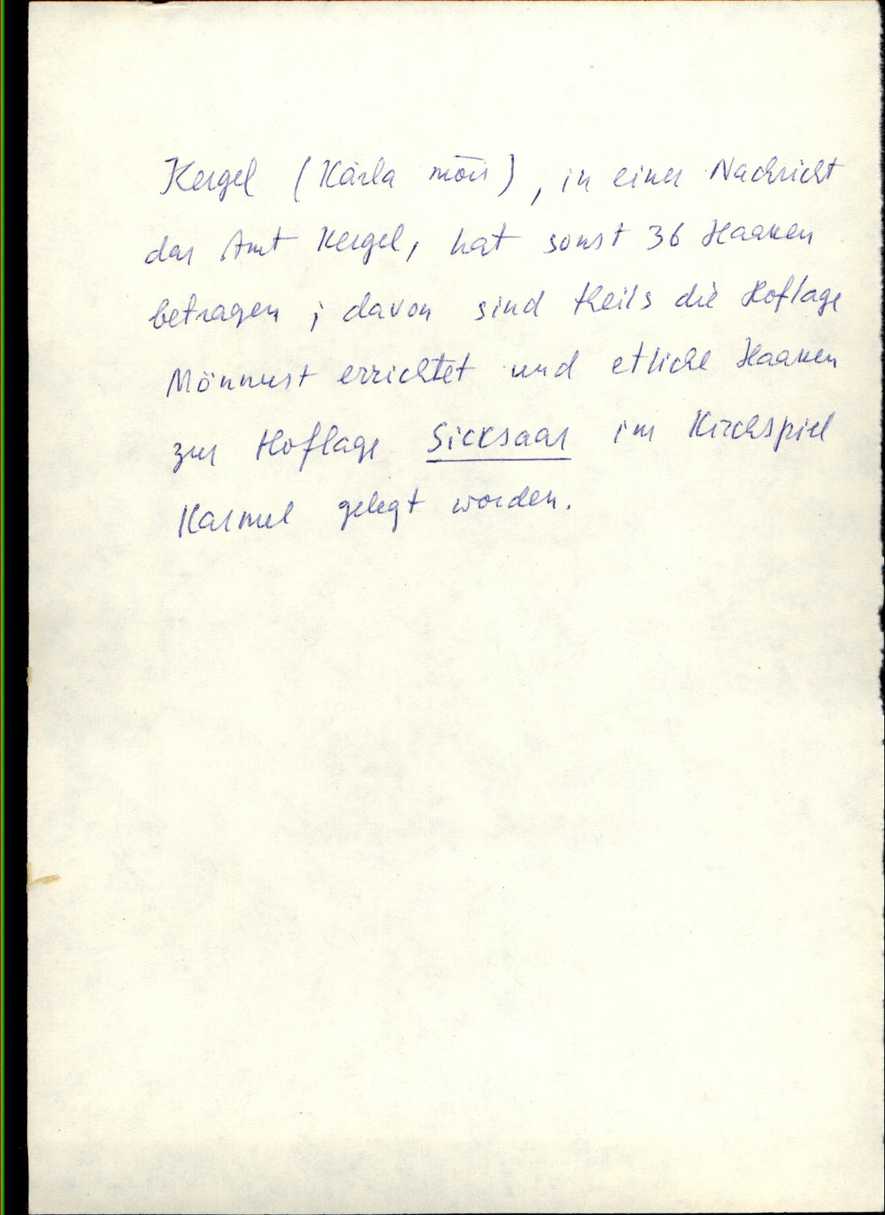 Kergel (Kärla mõis), in einer Nachricht
das Amt Kergel, hat sonst 36 Haaken
betragen; davon sind theils die Hoflage
Mönnust errichtet und etliche Haaken
zur Hoflage Sicksaar im Kirchspiel
Karmel gelegt worden.